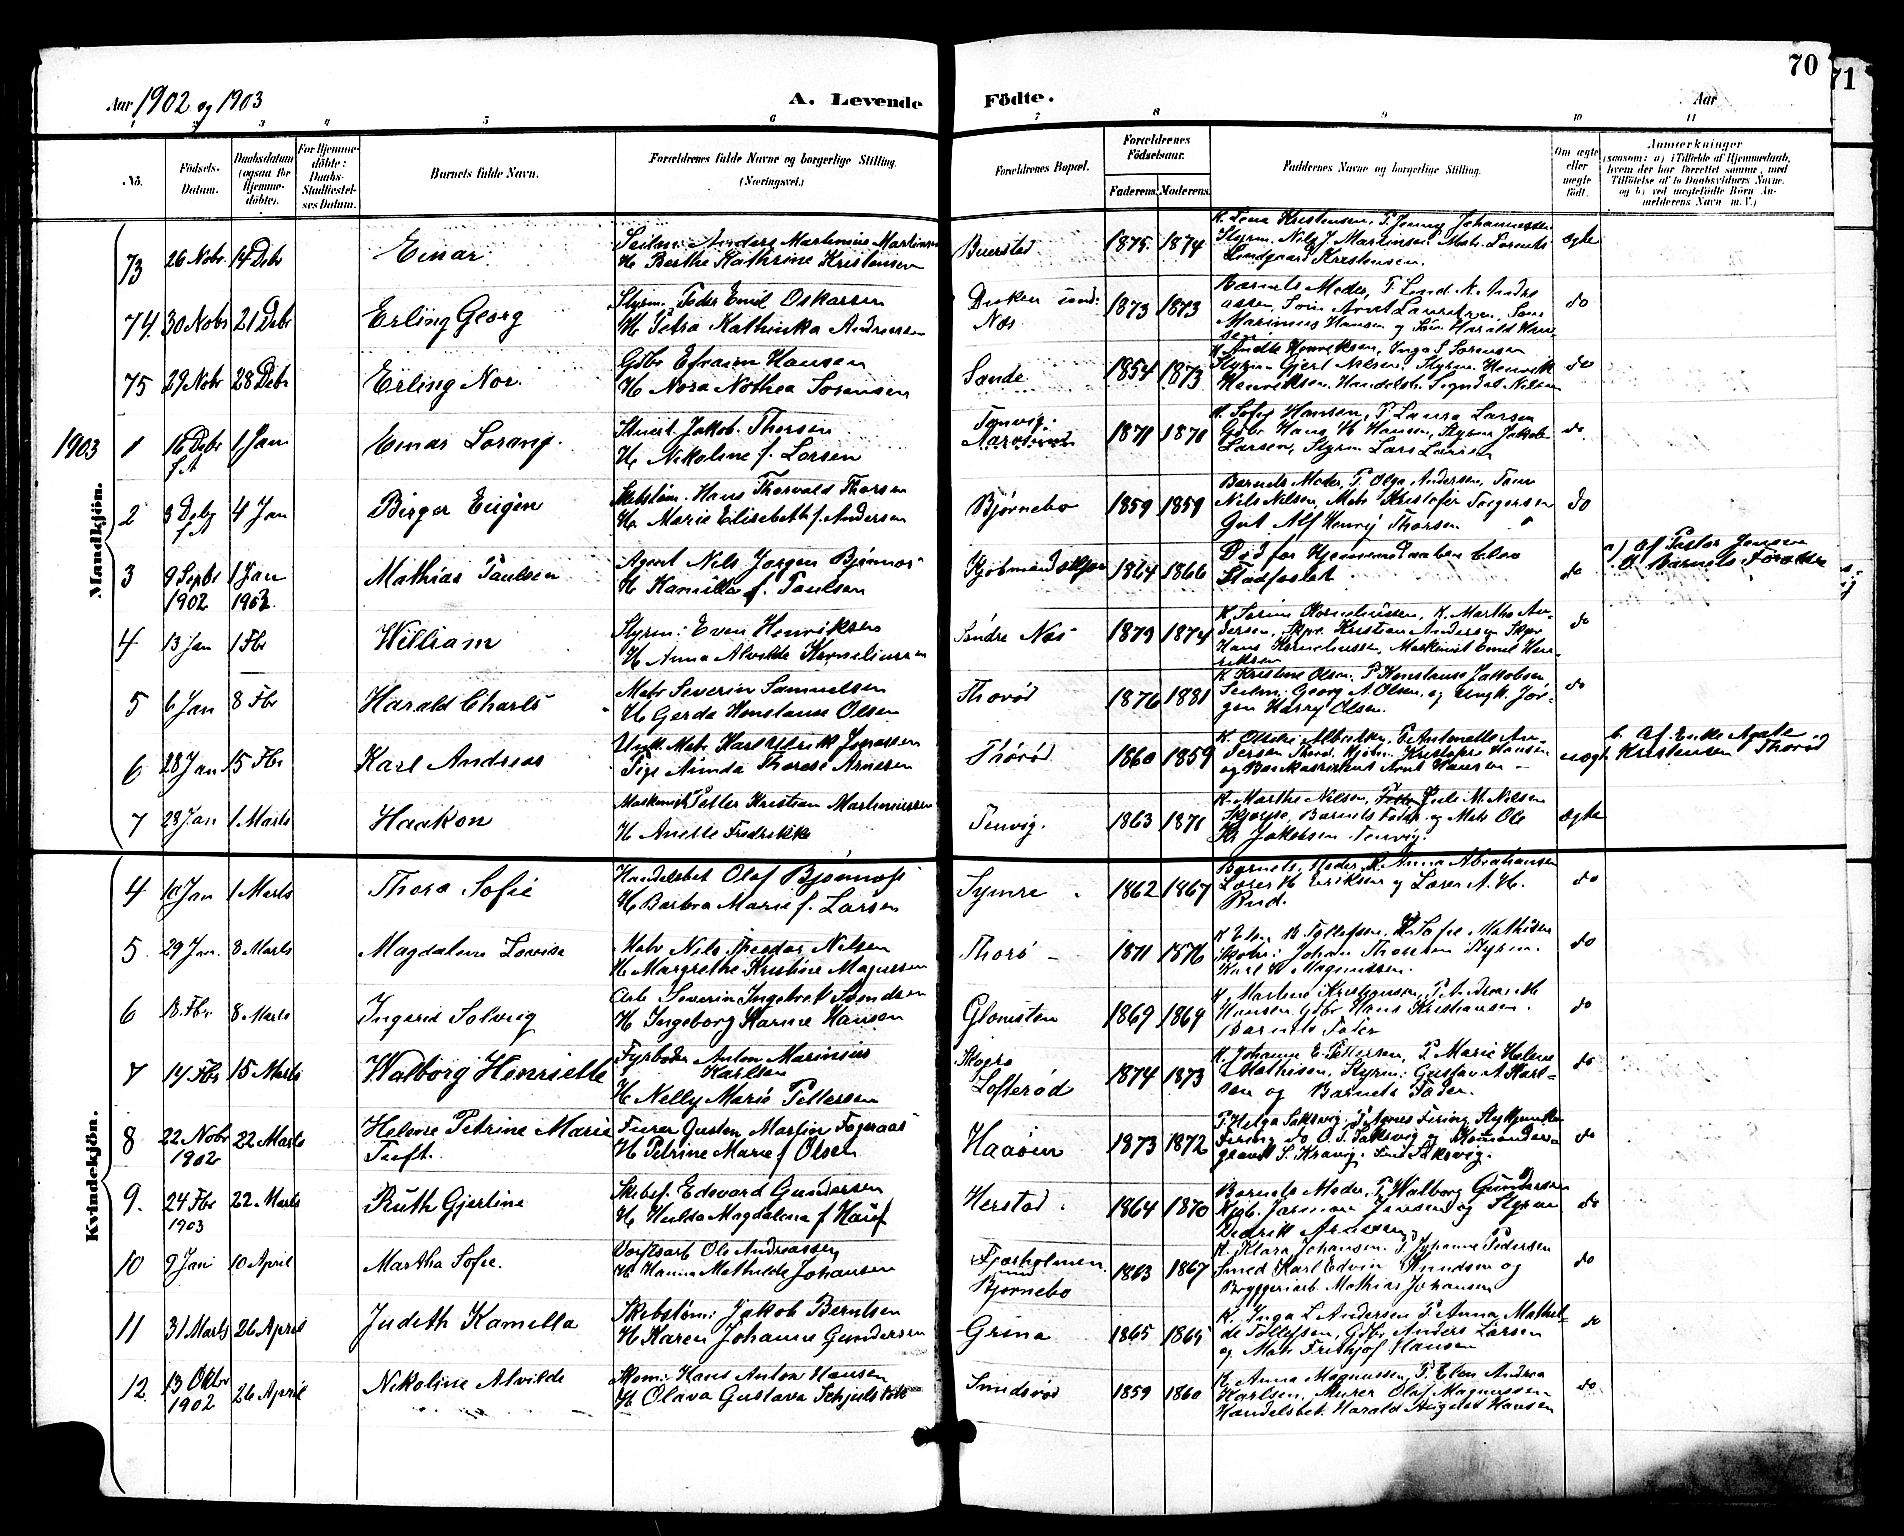 70
71
Aar 1902 og 1903
A. Levende
Födte.
Aar
1 2 3 4 5 6 7 8 9 10 11
No.
Födsels-
Datum.
Daabsdatum
(ogsaa for
Hjemme-
döbte).
For Hjemme-
döbte:
Daabs-
Stadfæstel-
ses Datum.
Barnets fulde Navn.
Forældrenes fulde Navne og borgerlige Stilling.
(Næringsvei.)
Forældrenes Bopæl.
Forældrenes
Födselsaar.
Faderens.
Moderens.
Faddernes Navne og borgerlige Stilling.
Om ægte
eller
uægte
födt.
Anmærkninger
(saasom: a) i Tilfælde af Hjemmedaab,
hvem der har forrettet samme, med
Tilföielse af to Daabsvidners Navne,
og b) ved uægtefödte Börn An-
melderens Navn m. V.)
Mandkjön.
73 26 Nobr 14 Debr Einar
Seilm: Anders Martinius Martinsen
H Berthe Kathrine Kristensen
Buerstad 1875 1874
K. Lena Kristensen, P. Jenny Johannessen
Styrm. Nils J. Martinsen Matr. Lorents
Lindgaard Kristensen.
Ægte
74. 30 Nobr 21 Debr Erling Georg
Styrm. Peder Emil Oskarsen
H Petra Kathinka Andersen
Næs 1873 1873
Barnets Moder, P.
Marinus Hansen og Harald Han
sen
do
75 29 Nobr 28 Debr Erling Nor.
Gdbr Efraim Hansen
H Nora Nothea Sorensen
Sande 1854 1873
Henriksen, Inga S Sorensen
Styrm Gjert Nilsen, Styrm. Henrik
Henriksen, Handelsb. Nilsen
do
1903
1 16 Debr f.A 1 Jan Einar Lorang.
Stuert Jakob Thorsen
H Nikoline f. Larsen
Tenvig: 1871 1870
K. Sofie Hansen, P. Laura Larsen
Gdbr Hans H Hansen, Styrm Jakob
Larsen, Styrm Lars Larsen
do.
2 3 Debr f.A 4 Jan Birger Eugen
Skibstöm. Hans Thorvald Thorsen
H. Marie Elisabeth f. Andersen
Bjørnebo 1859 1859
Barnets Moder, P. Olga Andersen, Tøm
Nils Nilsen, Matr Kristofer Torgersen
Gut Alf Henry Thorsen
do
3 9 Septbr 1902 1 Jan 1903. Mathias Paulsen
Agent Nils Jørgen Bjønnes
H Kamilla f. Paulsen
Kjøbmandskjær 1864 1866
Død før Hjemmedaaben blev
Stadfæstet
do
a). Af Pastor Jensen
Barnets Forældre
4 13 Jan 1 Fbr William
Styrm: Even Henriksen
H Anna Alvilde Korneliussen
Søndre Næs 1879 1874
K. Serine Korneliussen, K. Marthe An-
dersen, Skpr. Kristian Andersen Skpr
Hans Korneliussen, Maskinist Emil Hen-
riksen
do
5 6 Jan 8 Fbr Harald Charls
Matr Severin Samuelsen
H Gerda Konstanse Olsen
Thorød 1876 1881
K Kristine Olsen P Konstanse Jakobsen
Seilm: Georg A. Olsen, og Ungk. Jør-
gen Harry Olsen.
do
6 28 Jan 15 Fbr Karl Andreas
Ungk. Matr. Karl Ulrik
Pige Aminda Therese Arnesen
Thorød. 1860 1859
K. Albertsen, P. Antonette An-
dersen Thorød. Kjøbm. Kristofer Hansen
og Bankassistent Arnt Hansen
uægte
b. Af Enke Agate
Kristensen Thorød
7 28 Jan 1 Marts Haakon
Maskinist Peller Kristian Martiniussen
H Anette Fredrikke
Tenvig. 1863 1871
K. Marthe Nilsen, Jule M. Nilsen
Skjærpe, Barnets Fader og Matr Ole
Kr Jakobsen Tenvig.
Ægte
Kvindekjön.
4 10 Jan 1 Marts Thora Sofie
Handelsbet Olaf Bjønnes
H Barbra Marie f. Larsen
Symre 1862 1867
Barnets Moder, P. Anna Abrahamsen
Lærer H Eriksen og Lærer A. H.
Rud.
do
5. 29 Jan 8 Marts Magdalene Lovise
Matr Nils Theodor Nilsen
H Margrethe Kristine Magnussen
Thorø 1871 1876
K Elen B Tollefsen, P Sofie Mathisen
Skotr: Johan Thorsen Styrm.
Karl H Magnussen.
do
6 13 Fbr 8 Marts Ingerid Solveig
Arb Severin Ingebret Svendsen
H Ingeborg Karine Hansen
Glomsten 1869 1869
K Martine Kristiansen, P Andrea M
Hansen Gdbr Hans Kristiansen.
Barnets Fader
do
7 14 Fbr 15 Marts Walborg Henriette
Fyrbøder Anton Marinius
Karlsen
H Nelly Marie Pettersen
Skogs
Lofterød 1874 1873
K. Johanne E. Pettersen, P Marie Helene
Mathisen, Styrm: Gustav A Karl-
sen og Barnets Fader.
do
8 22 Nobr 1902 22 Marts Helene Petrine Marie
Tuft.
Furer Gusten Martin Fageraas
H Petrine Marie f Olsen
Haaøen 1873 1872
P. Helga Saksvig, P. Agnes Firing
Firing do O. T. Saksvig og
Saksvig.
do
9. 24 Fbr 1903 22 Marts Ruth Gjertine
Skibsf. Edevard Gundersen
H Hulda Magdalena f
Herstad. 1864 1870
Barnets Moder, P. Walborg Gundersen
Kjøb. Jørgen Jensen og Styrm
Didrik Arnesen
do
10 9 Jan 10 April Martha Sofie.
Værftsarb Ole Andreassen
H Hanna Mathilde Johansen
Fjærholmen
Bjørnebo 1863 1867
K. Klara Johansen. P. Johanne Pedersen
Smed Karl Edvin Knudsen og
Bryggeriarb Mathias Johansen
do
11 31 Marts 26 April Judith Kamilla
Skibstöm: Jakob Berntsen
H Karen Johanne Gundersen
Grina 1865 1865
K. Inga L Andersen P Anna Mathil-
de Tollefsen, Gdbr. Anders Larsen
og Matr Frithjof Hansen
do
12. 13 Oktbr 1902 26 April Nikoline Alvilde
Skom: Hans Anton Hansen
H Olava Gustava
Sundsrød 1859 1860
K. Anna Magnussen, P. Elen Andrea
Karlsen, Murer Olaf Magnussen
Handelsbet. Harald August Hansen
do